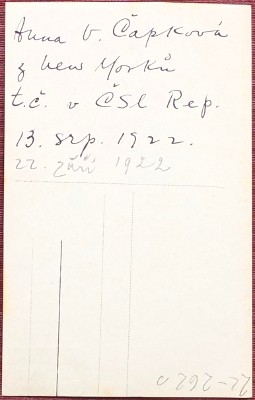 Anna V. Čapková
z New Yorků
t.č. v ČSl Rep.
13. srp. 1922.
22. září 1922